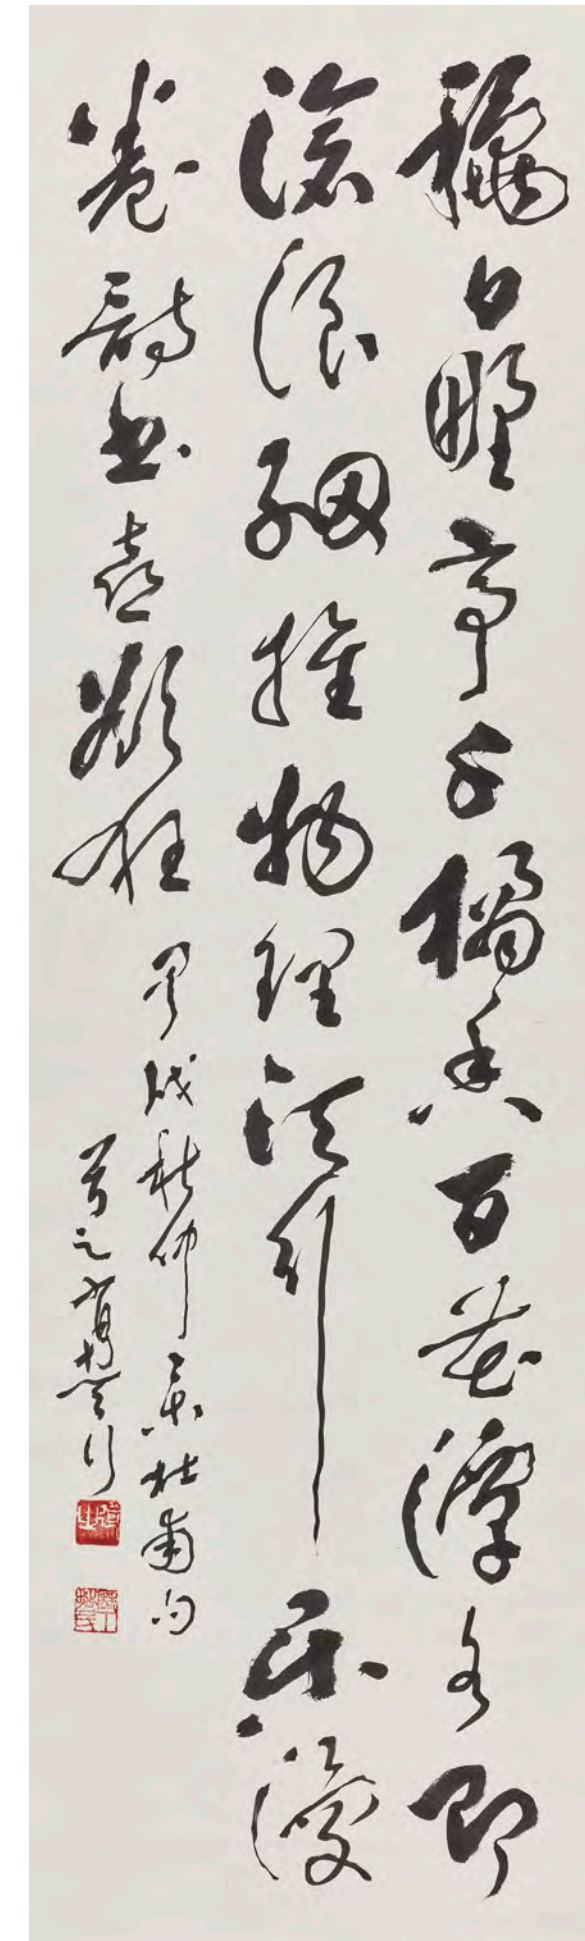 龝日野亭千橘香百花潭水即
滄浪細推物理須行樂漫
卷詩書喜欲狂
甲戌秋仲集杜甫句